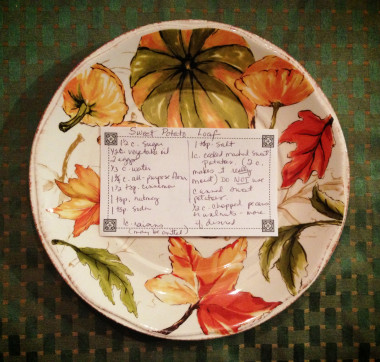 Sweet Potato Loaf
1½ c. sugar
½ c. vegetable oil
2 eggs
⅓ c. water
1¾ c. all-purpose flour
1½ tsp. cinnamon
1 tsp. nutmeg
1 tsp. soda
1 tsp. salt
1 c. cooked mashed sweet
potatoes (2 c.
makes it really
moist) Do NOT use
canned sweet
potatoes
½ c. chopped pecans
or walnuts - more
if desired
raisins
(may be omitted)